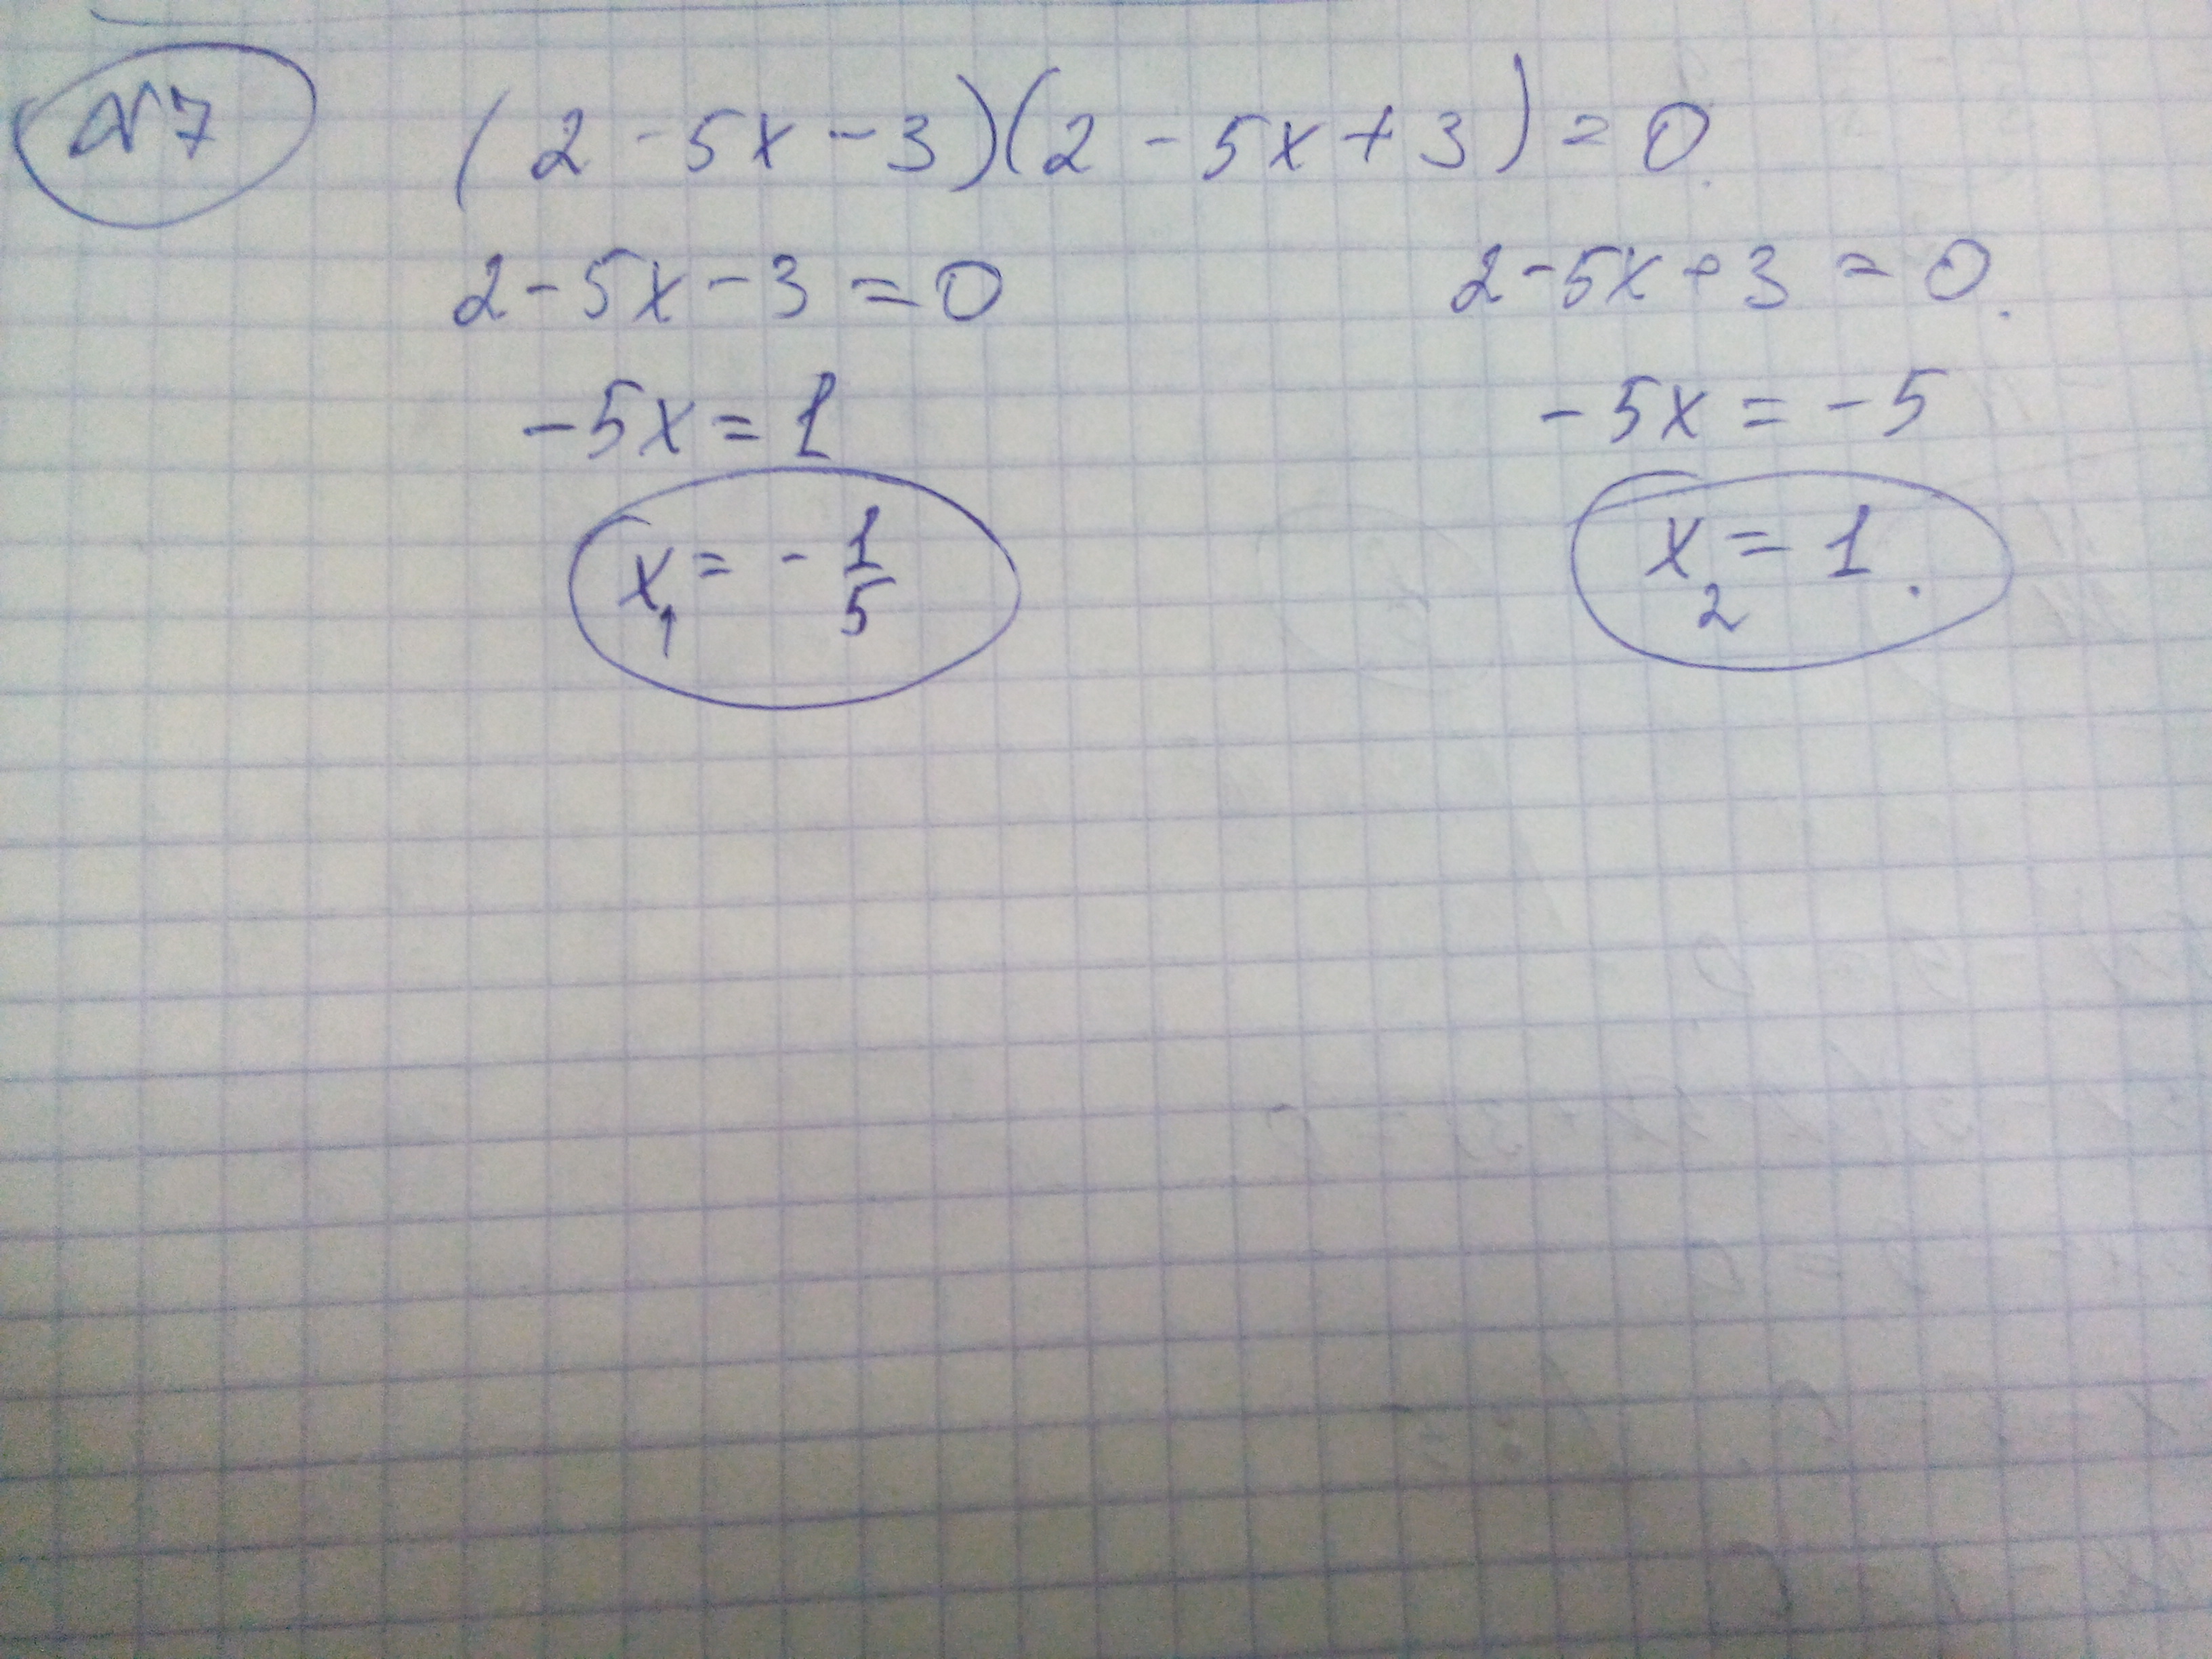 №7 (2 - 5x - 3)(2 - 5x + 3) = 0.
2 - 5x - 3 = 0 2 - 5x + 3 = 0.
-5x = 1 -5x = -5
x₁ = - 1/5 x₂ = 1.